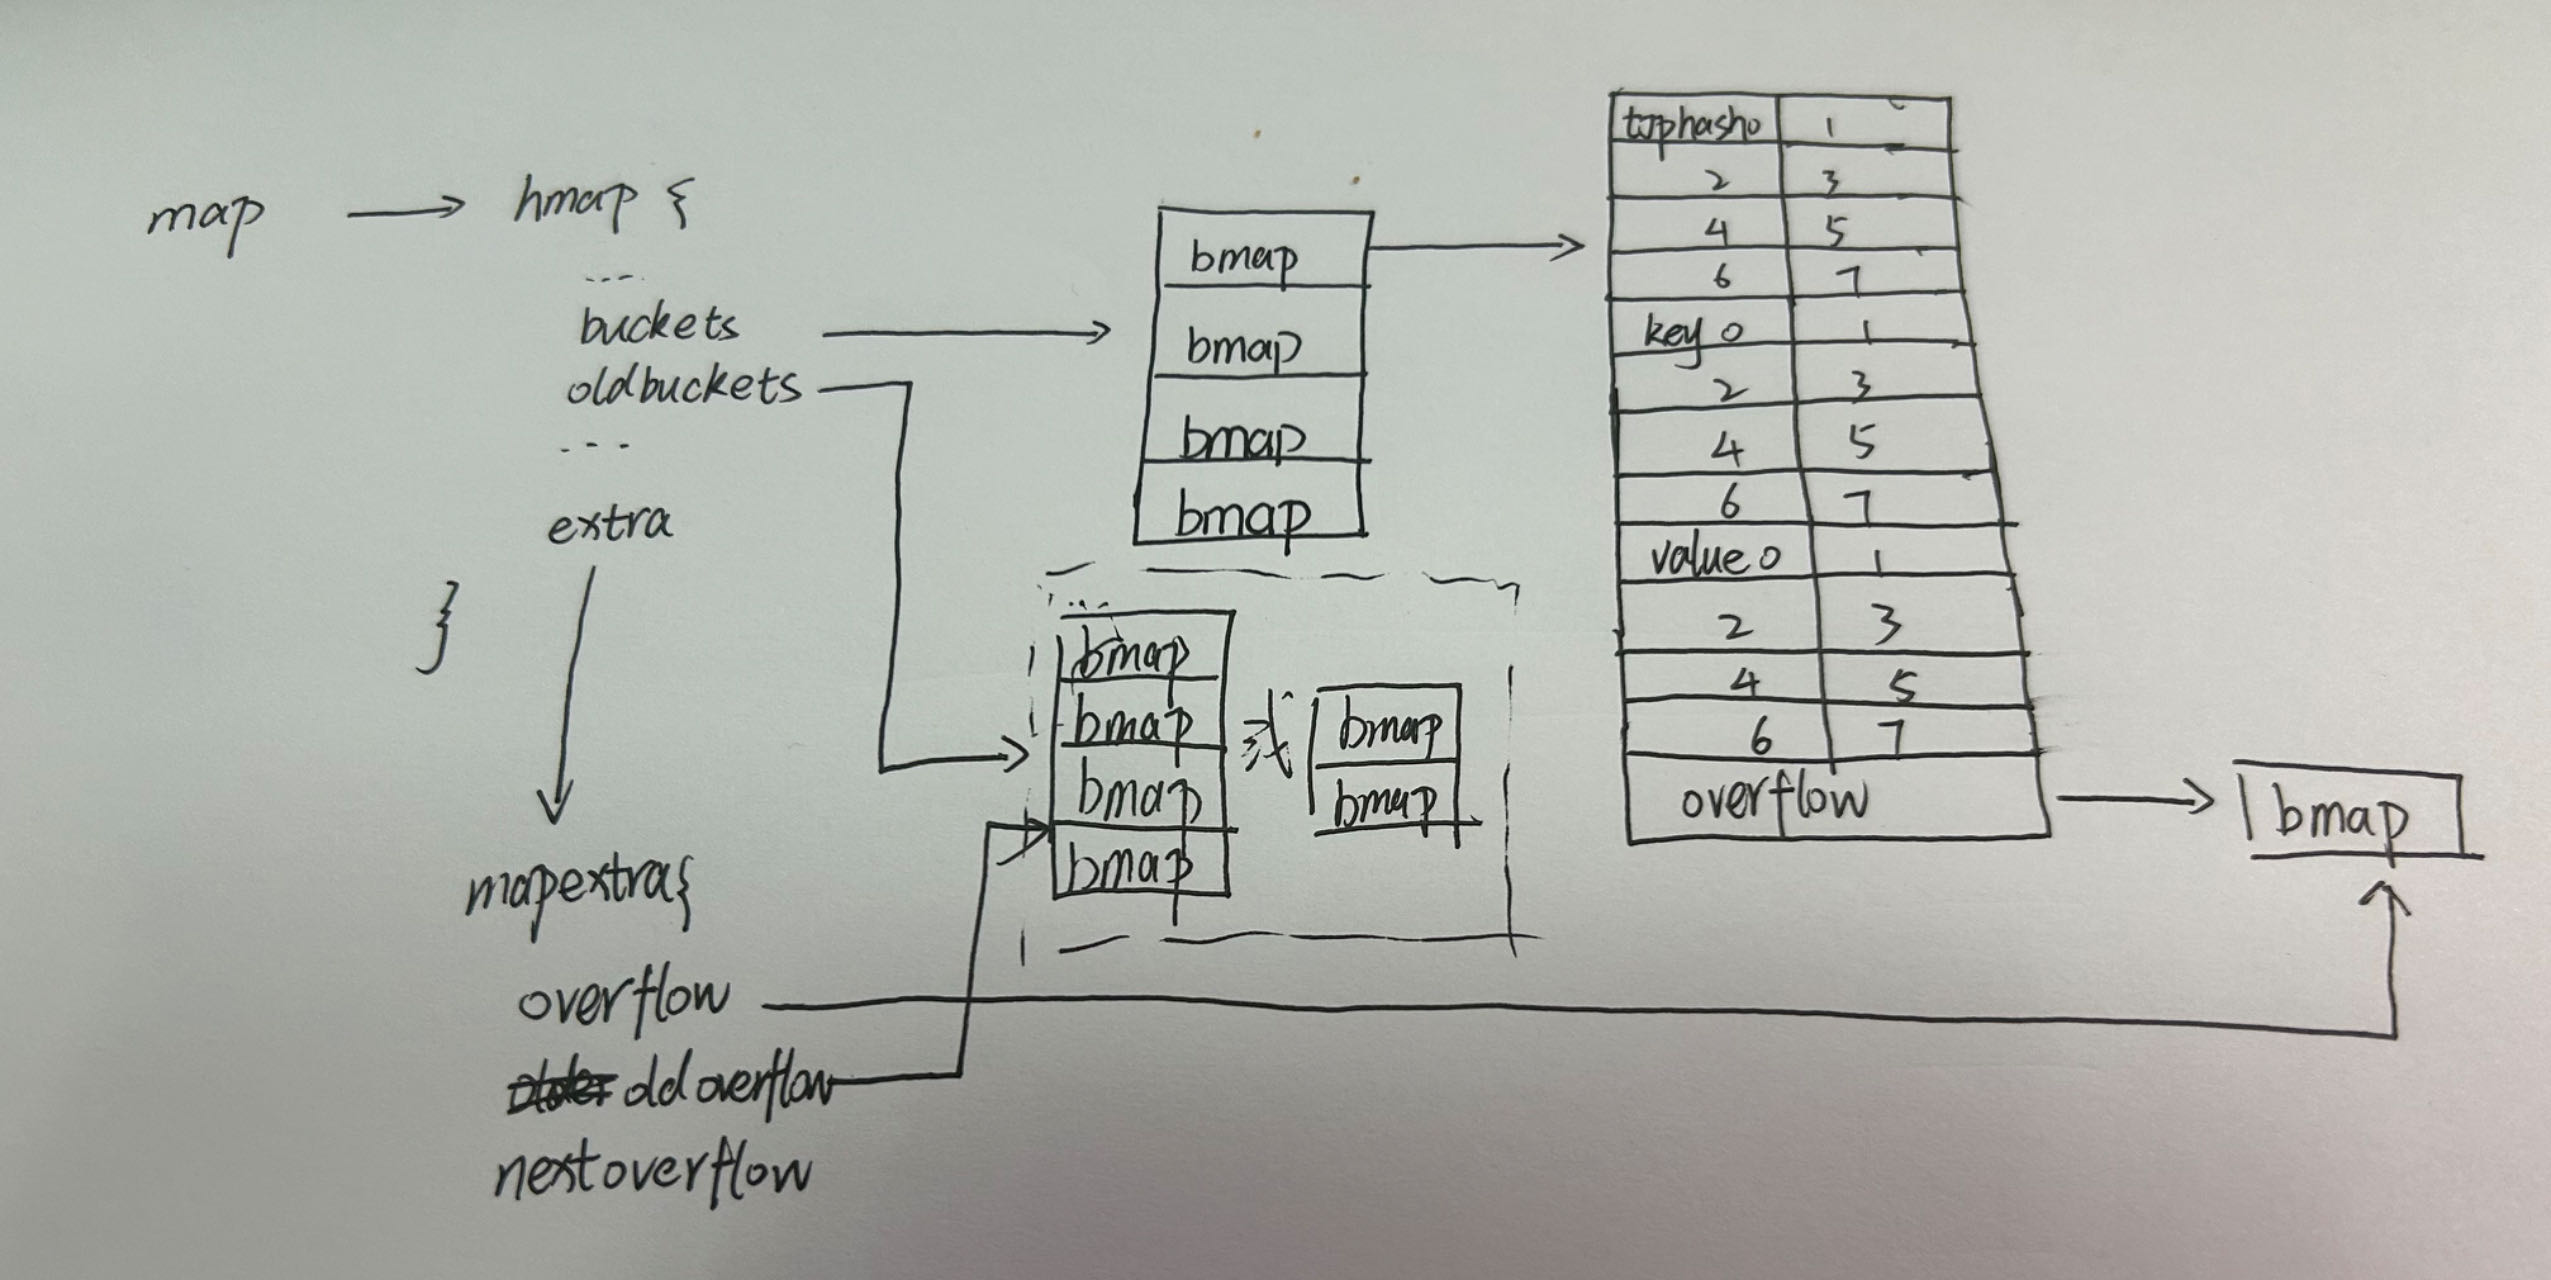 map
hmap {
....
buckets
oldbuckets
...
extra
}
mapextra{
overflow
old overflow
nextoverflow
bmap
bmap
bmap
bmap
bmap
bmap
bmap
bmap
或
bmap
bmap
tophash0 1
2 3
4 5
6 7
key 0 1
2 3
4 5
6 7
value 0 1
2 3
4 5
6 7
overflow
bmap